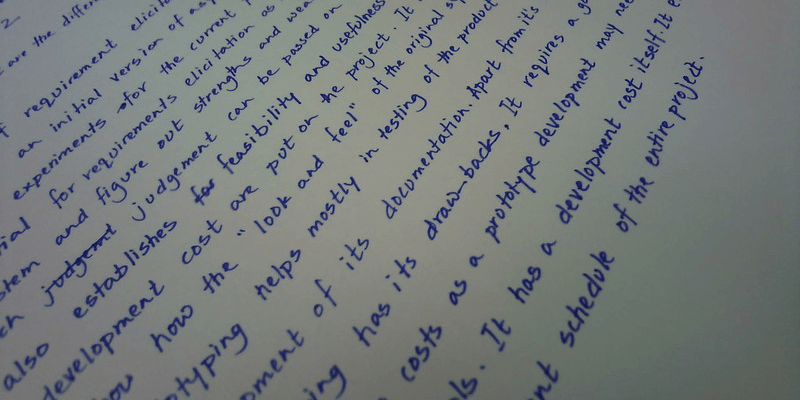 2
are the differ
f requirement elicita
an initial version of a sy
experiments for the current p
for requirements elicitation as
stem and figure out strengths and wea
judgement can be passed on
also establishes for feasibility and usefulness
development cost are put on the project. It
how the "look and feel" of the original sy
otyping helps mostly in testing of the product
opment of its documentation. Apart from it's
ing has its draw-backs. It requires a go
costs as a prototype development may nee
ls. It has a development cost itself. It e
nt schedule of the entire project.